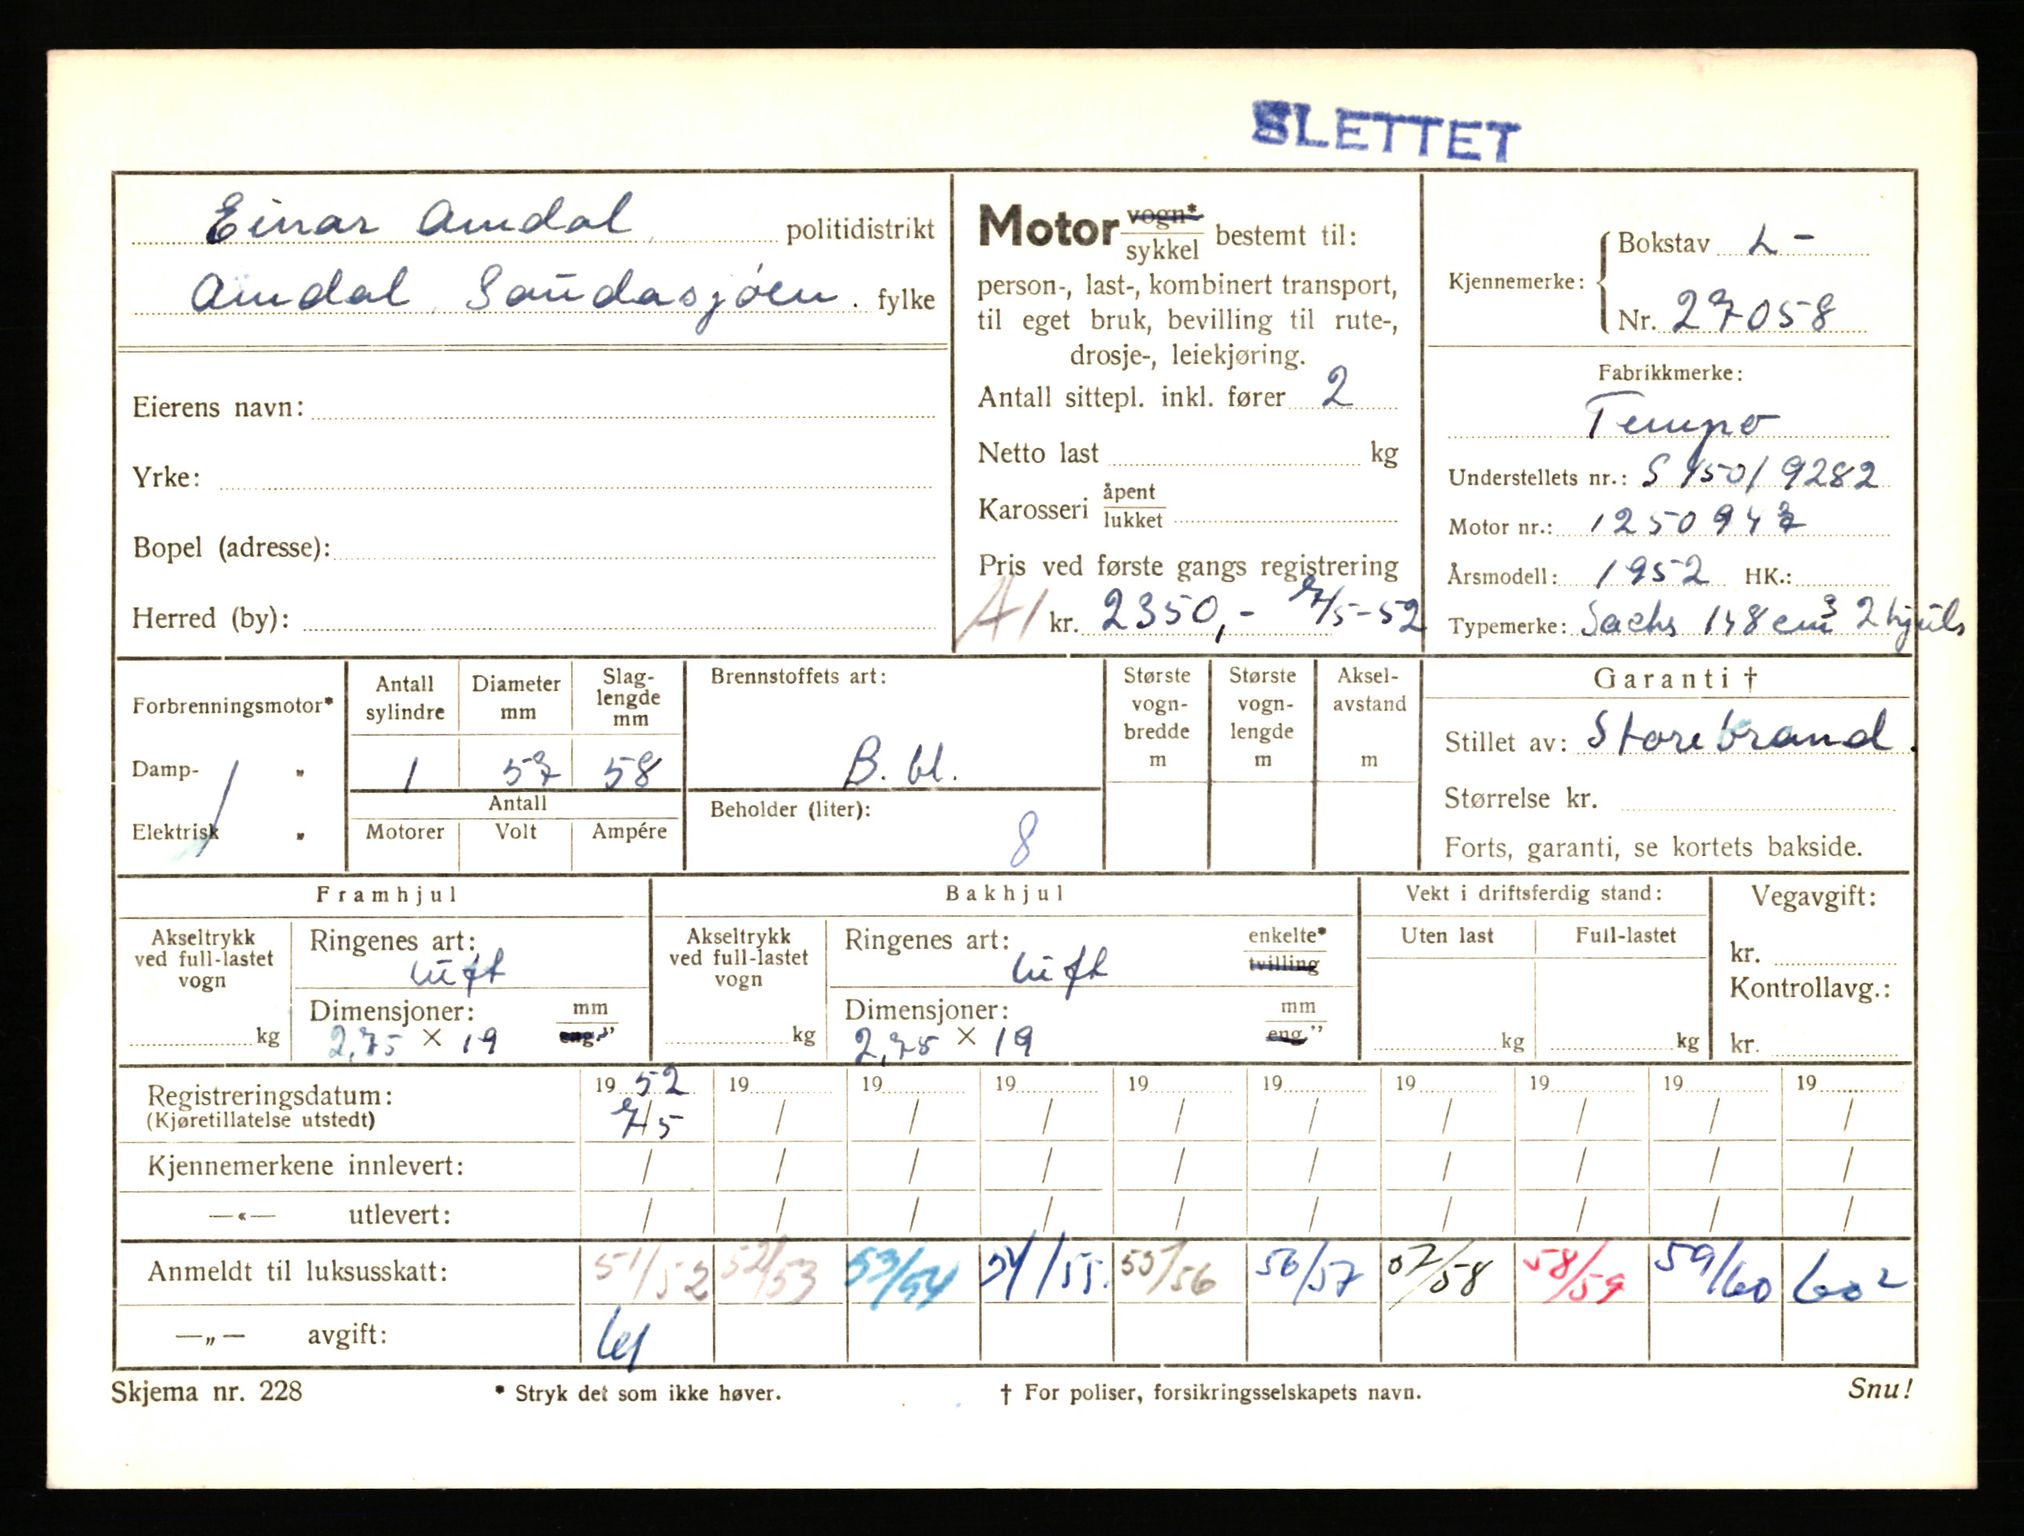 SLETTET
Einar Amdal politidistrikt
Amdal, Saudasjöen. fylke
Eierens navn:
Yrke:
Bopel (adresse):
Herred (by):
Motor vogn* sykkel bestemt til:
person-, last-, kombinert transport,
til eget bruk, bevilling til rute-,
drosje-, leiekjøring.
Antall sittepl. inkl. fører 2
Netto last kg
Karosseri åpent lukket
Pris ved første gangs registrering
A1 kr. 2350,- 7/5-52
Kjennemerke: Bokstav L-
Nr. 27058
Fabrikkmerke:
Tempo
Understellets nr.: S 150/9282
Motor nr.: 1250947
Årsmodell: 1952 HK.:
Typemerke: Sachs 148 cm3 2 hjuls
Forbrenningsmotor*
Damp- "
Elektrisk "
Antall sylindre
Diameter mm
Slag-lengde mm
1 57 58
Antall
Motorer Volt Ampére
Brennstoffets art:
B. bl.
Beholder (liter):
8
Største vogn-bredde m
Største vogn-lengde m
Aksel-avstand m
Garanti †
Stillet av: Storebrand.
Størrelse kr.
Forts, garanti, se kortets bakside.
Framhjul
Akseltrykk ved full-lastet vogn
kg
Ringenes art:
luft
Dimensjoner: mm eng."
2,75 × 19
Bakhjul
Akseltrykk ved full-lastet vogn
kg
Ringenes art: enkelte* tvilling
luft
Dimensjoner: mm eng."
2,75 × 19
Vekt i driftsferdig stand:
Uten last Full-lastet
kg kg
Vegavgift:
kr.
Kontrollavg.:
kr.
Registreringsdatum: 19 52 19 19 19 19 19 19 19 19 19
(Kjøretillatelse utstedt) 7/5 / / / / / / / / /
Kjennemerkene innlevert: / / / / / / / / / /
—«— utlevert: / / / / / / / / / /
Anmeldt til luksusskatt: 51/52 52/53 53/54 54/55. 55/56 56/57 57/58 58/59 59/60 60 2
—„— avgift: 61
Skjema nr. 228 * Stryk det som ikke høver. † For poliser, forsikringsselskapets navn. Snu!